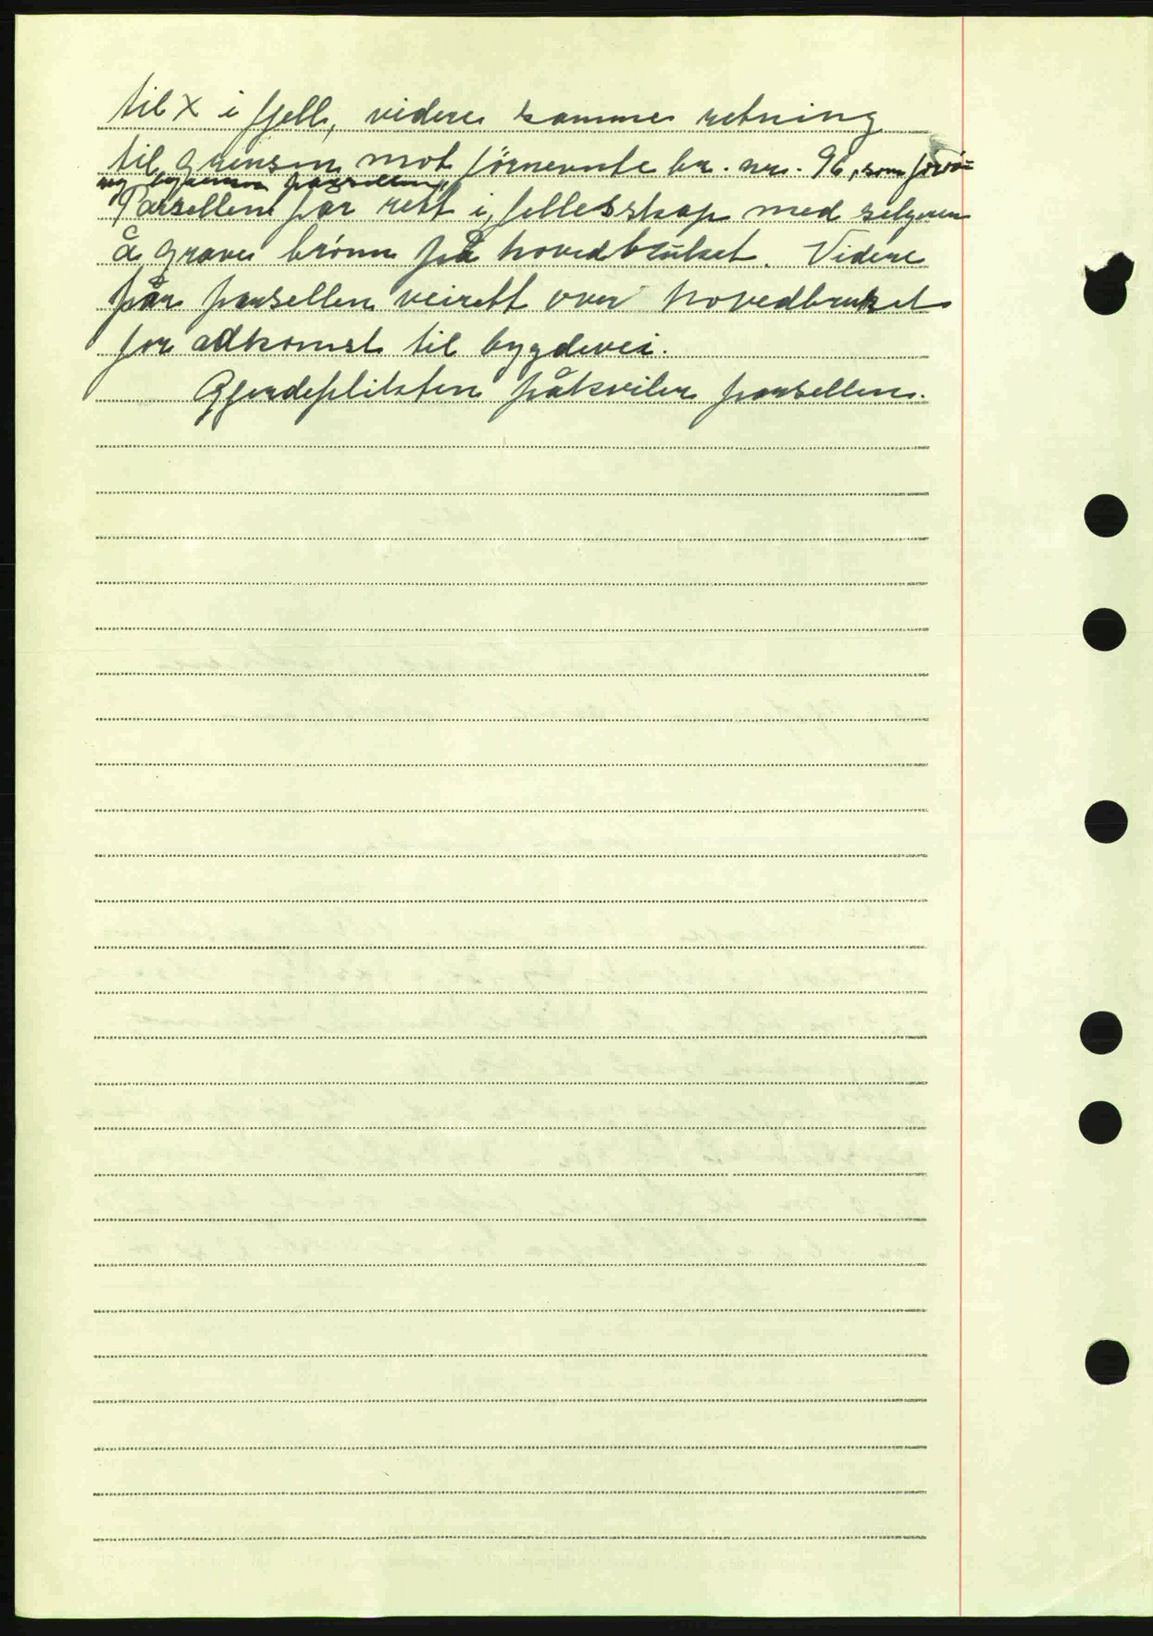 til X i fjell, videre samme retning
til grensen mot førnevnte br. nr. 96, som forøv=
rig begrenser parsellen.
Parsellen får rett i fellesskap med selgeren
å grave brønn på hovedbruket. Videre
får parsellen veirett over hovedbruket
for adkomst til bygdevei.
Gjerdeplikten påkviler parsellen.